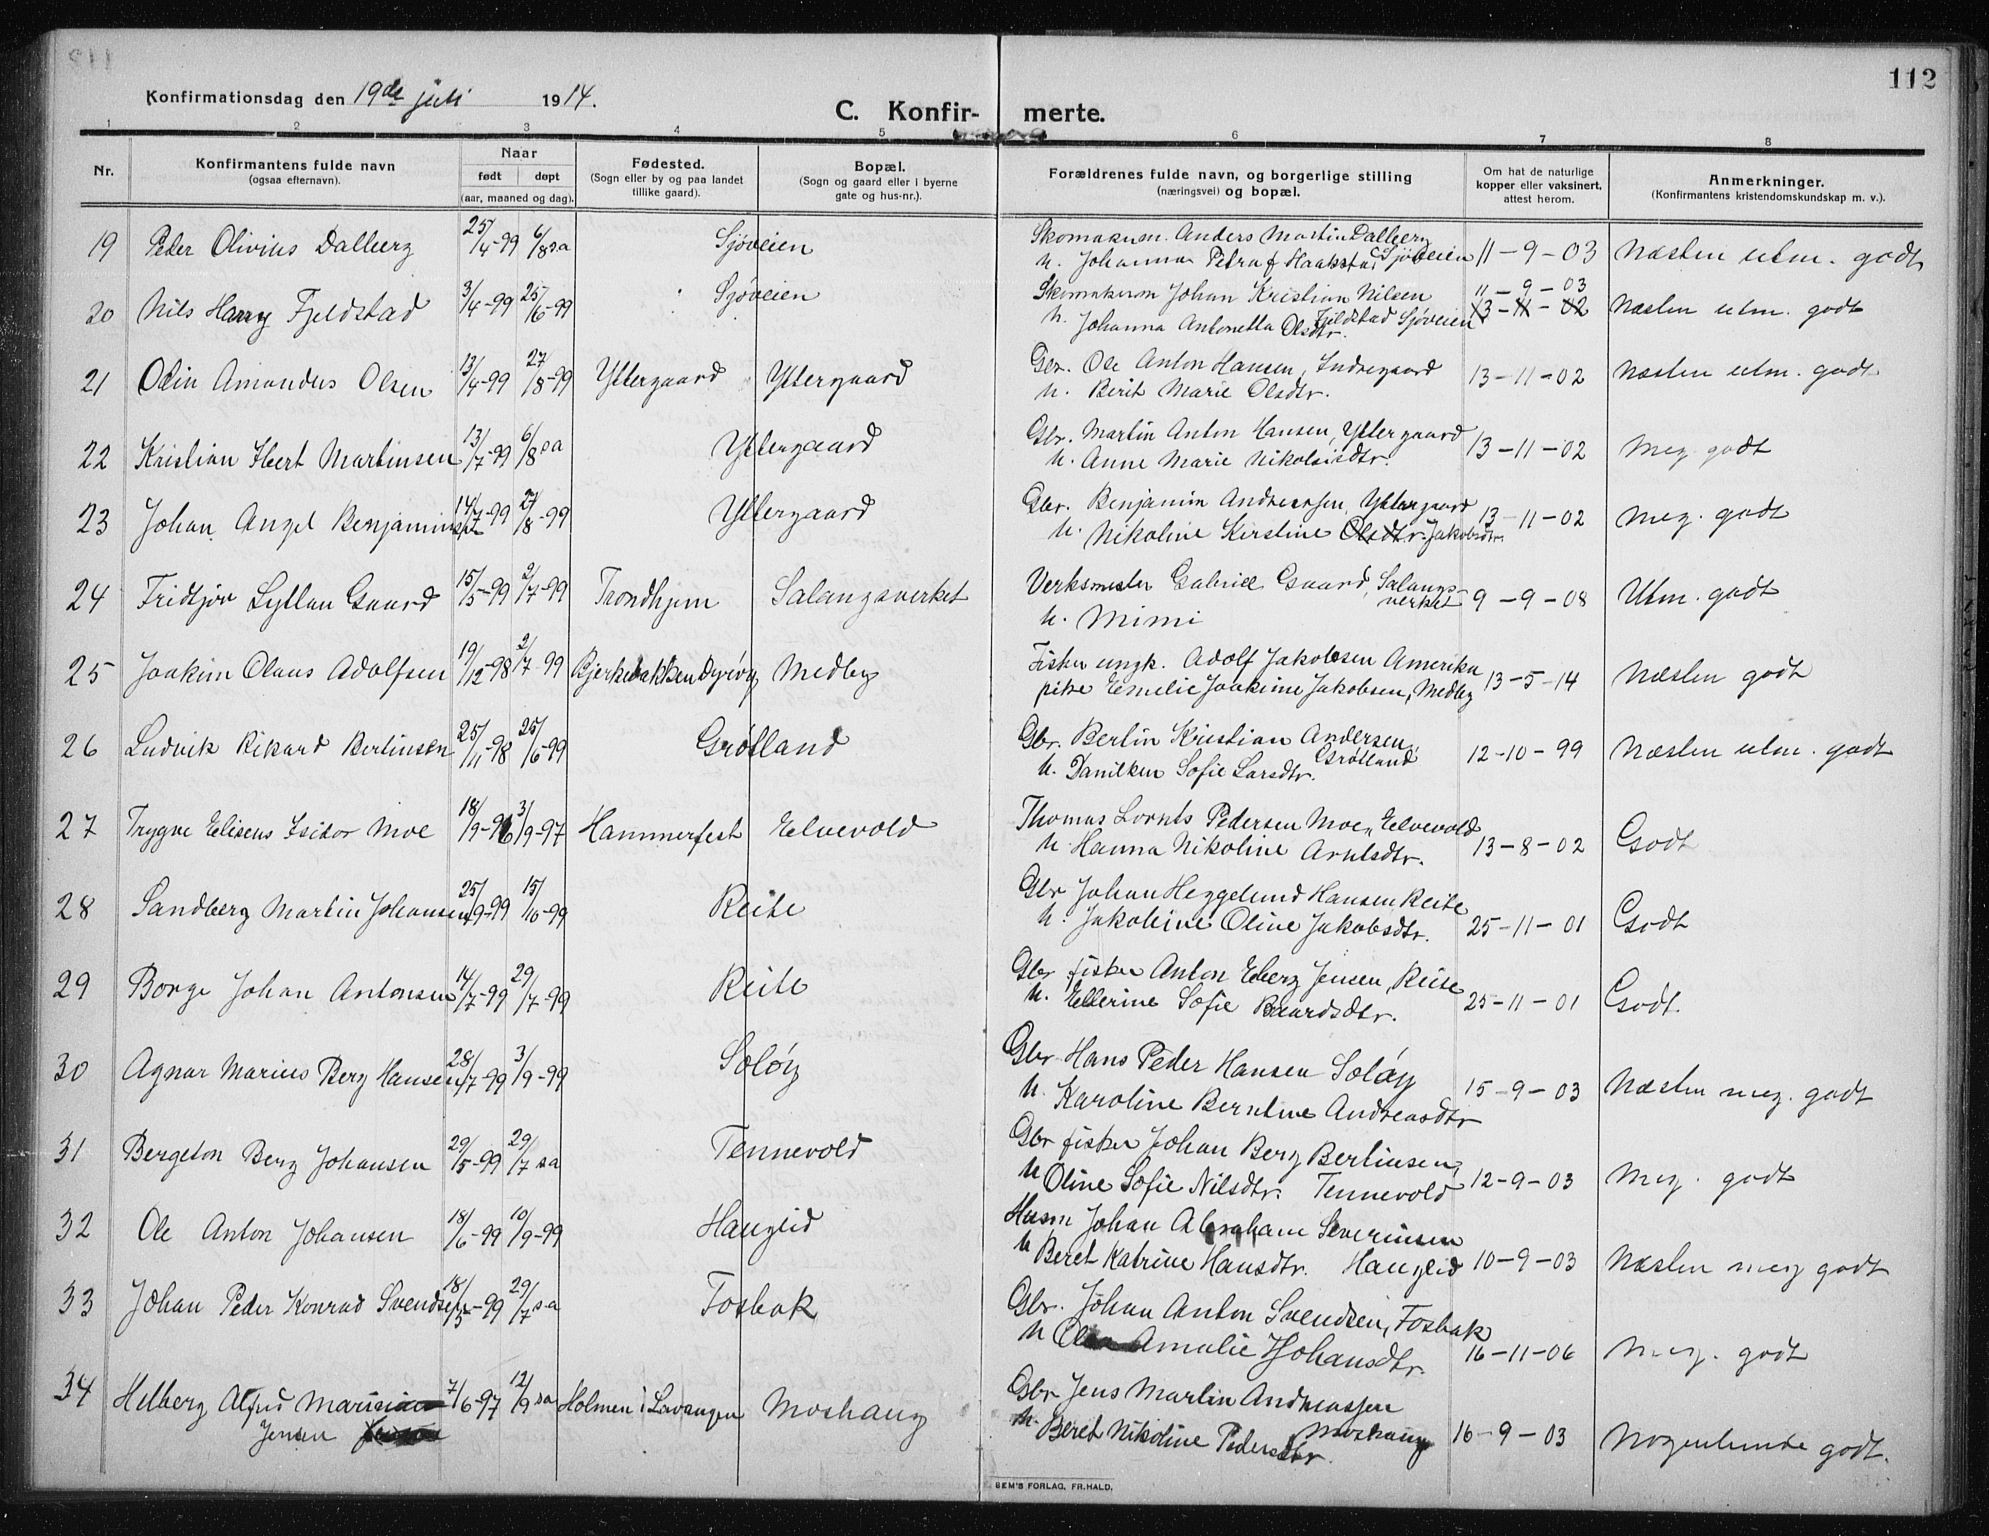 112
Konfirmationsdag den 19de juli 1914.
C. Konfir- merte.
1 2 3 4 5 6 7 8
Nr.
Konfirmantens fulde navn
(ogsaa efternavn).
Naar
født døpt
(aar, maaned og dag).
Fødested.
(Sogn eller by og paa landet
tillike gaard).
Bopæl.
(Sogn og gaard eller i byerne
gate og hus-nr.).
Forældrenes fulde navn, og borgerlige stilling
(næringsvei) og bopæl.
Om hat de naturlige
kopper eller vaksinert,
attest herom.
Anmerkninger.
(Konfirmantens kristendomskundskap m. v.).
19 Peder Olivius Dalberg 25/4-99 6/8 sa Sjøveien Skomakerm. Anders Martin Dalberg Sjøveien 11-9-03 Næsten utm. godt
u. Johanna Petra f Haakstad
20 Nils Harry Fjeldstad 3/4-99 25/6-99 Sjøveien Skomakerm Johan Kristian Nilsen Fjeldstad Sjøveien 11-9-03 Næsten utm. godt
u. Johanna Antonetta Olsdtr. 13-11-02
21 Odin Amandus Olsen 13/4-99 27/8-99 Yttergaard Yttergaard Gbr. Ole Anton Hansen, Indregaard 13-11-02 Næsten utm. godt
u. Berit Marie Olsdtr.
22 Kristian Ibert Martinsen 13/7-99 6/8 sa Yttergaard Gbr. Martin Anton Hansen, Yttergaard 13-11-02 Meg. godt
u. Anne Marie Nikolaisdtr.
23 Johan Angel Benjaminsen 14/7-99 27/8-99 Yttergaard Gbr. Benjamin Andreassen, Yttergaard 13-11-02 Meg. godt
u. Nikoline Kirstine Olsdtr. Jakobsdtr.
24 Fridtjov Lyttan Gaard 15/5-99 2/7-99 Trondhjem Salangsverket Verksmester Gabriel Gaard, Salangsverket 9-9-08 Utm. godt
u. Mimi
25 Joakim Olaus Adolfsen 19/12-98 2/7-99 Bjerkebakken Dyrøy Medby Fisker ungk. Adolf Jakobsen Amerika 13-5-14 Næsten godt
pike Emelie Joakime Jakobsen, Medby
26 Ludvik Rikard Bertinsen 25/11-98 25/6-99 Grøtland Gbr. Bertin Kristian Andersen, Grøtland 12-10-99 Næsten utm. godt
u. Danilken Sofie Larsdtr.
27 Trygve Eliseus Isidor Moe 18/9-96 3/9-97 Hammerfest Elvevold Thomas Lornts Pedersen Moe, Elvevold 13-8-02 Godt
u Hanna Nikoline Arntsdtr.
28 Sandberg Martin Johansen 25/9-99 15/10-99 Reite Gbr Johan Heggelund Hansen Reite 25-11-01 Godt
u. Jakobine Oline Jakobsdtr.
29 Borge Johan Antonsen 14/7-99 29/7-99 Reite Gbr fisker Anton Eberg Jensen, Reite 25-11-01 Godt.
u. Ellerine Sofie Baardsdtr.
30 Agnar Marius Berg Hansen 28/7-99 3/9-99 Soløy Gbr Hans Peder Hansen Soløy 15-9-03 Næsten meg. godt
u. Karoline Berntine Andreasdtr
31 Bergeton Berg Johansen 29/5-99 29/7 sa Tennevold Gbr fisker Johan Berg Bertinsen, 12-9-03 Meg. godt
u Oline Sofie Nilsdtr. Tennevold
32 Ole Anton Johansen 18/6-99 10/9-99 Hauglid Husm Johan Abraham Severinsen 10-9-03 Næsten meg godt
u Beret Katrine Hansdtr. Hauglid
33 Johan Peder Konrad Svendsen 18/5-99 29/7 sa Fosbak Gbr. Johan Anton Svendsen, Fosbak 16-11-06 Meg. godt
u Amalie Johansdtr.
34 Helberg Alfred 7/6-97 12/9 sa Holmen i Lavangen Moshaug Gbr Jens Martin Andreassen Moshaug 16-9-03 Nogenlunde godt.
Jensen u. Beret Nikoline Pedersdtr.
SEM'S FORLAG, FR.HALD.